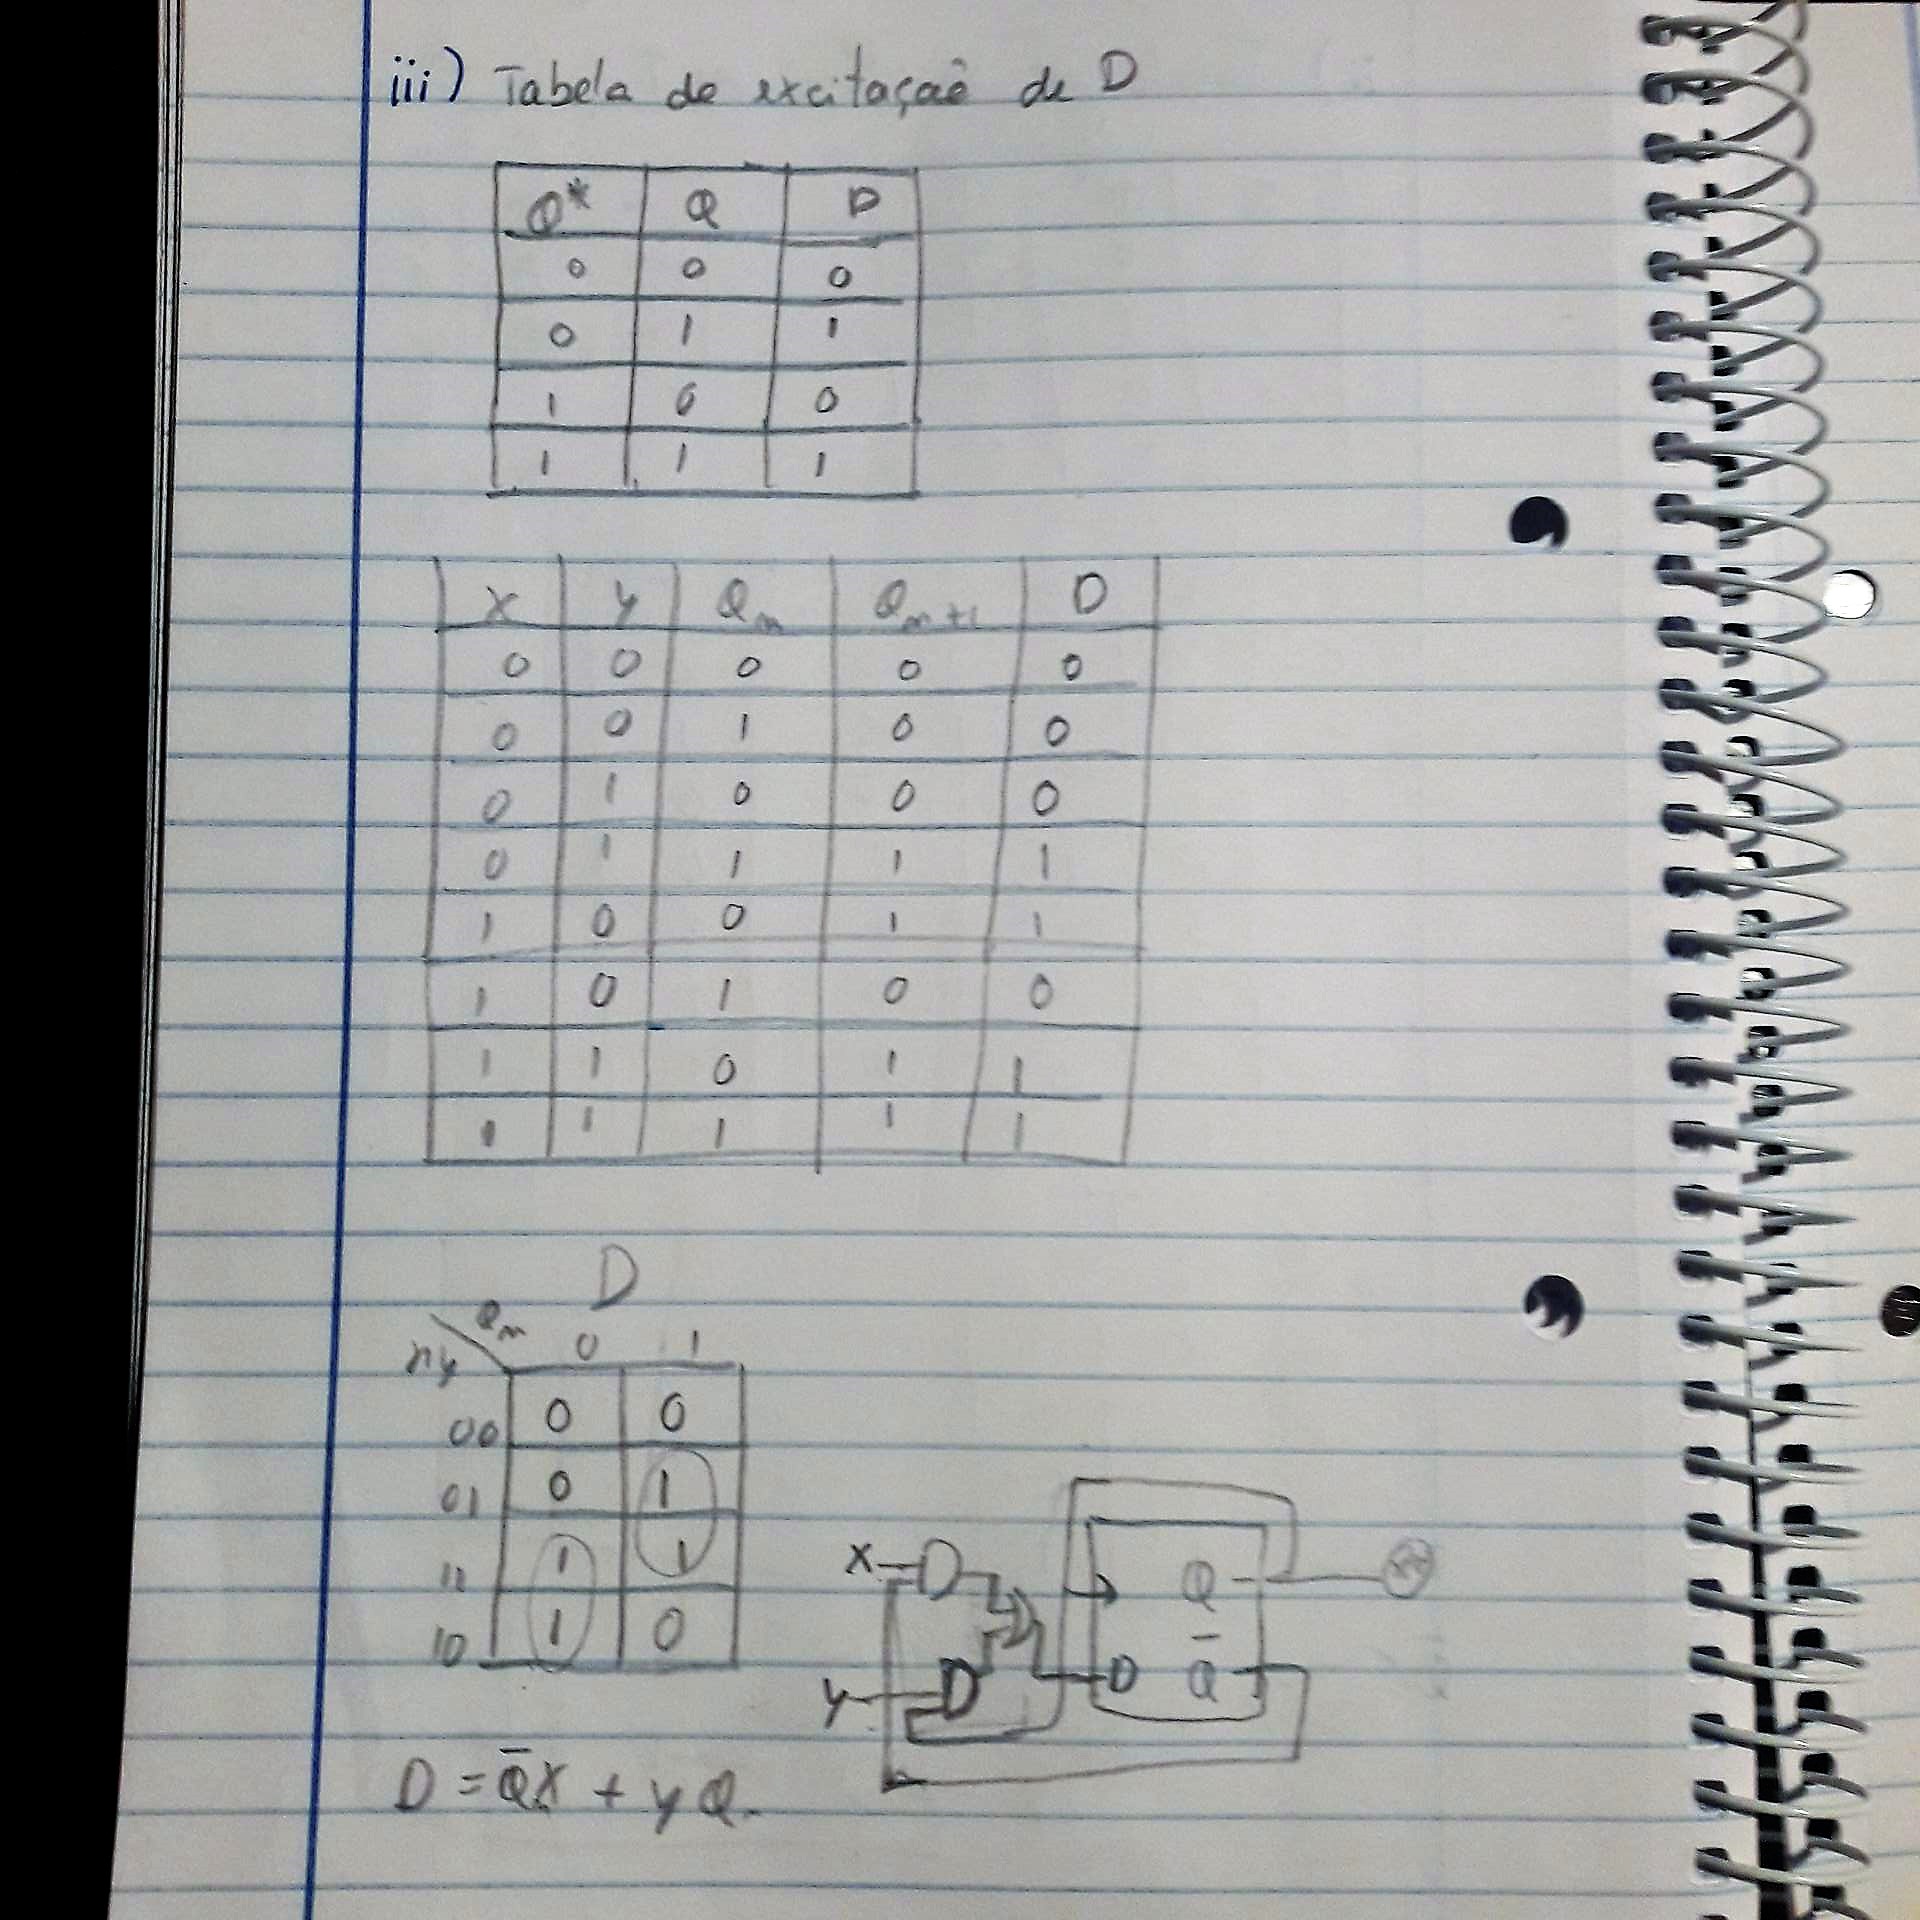 iii) Tabela de excitaçaê de D
Q* Q D
0 0 0
0 1 1
1 0 0
1 1 1
X y Qn Qn+1 D
0 0 0 0 0
0 0 1 0 0
0 1 0 0 0
0 1 1 1 1
1 0 0 1 1
1 0 1 0 0
1 1 0 1 1
1 1 1 1 1
D
Qn 0 1
xy
00 0 0
01 0 1
11 1 1
10 1 0
X Q
y D Q̄
D = Q̄X + yQ.